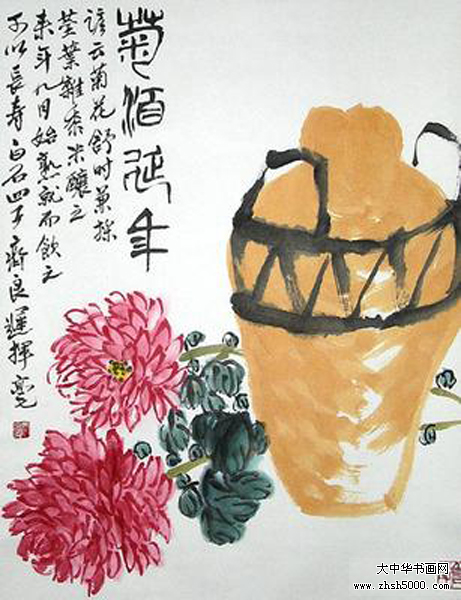 菊酒延年
諺云菊花舒时并採
莖葉雜黍米釀之
来年九月始熟就而飲之
可以長壽白石四子齊良遲揮毫
大中华书画网
www.zhsh5000.com